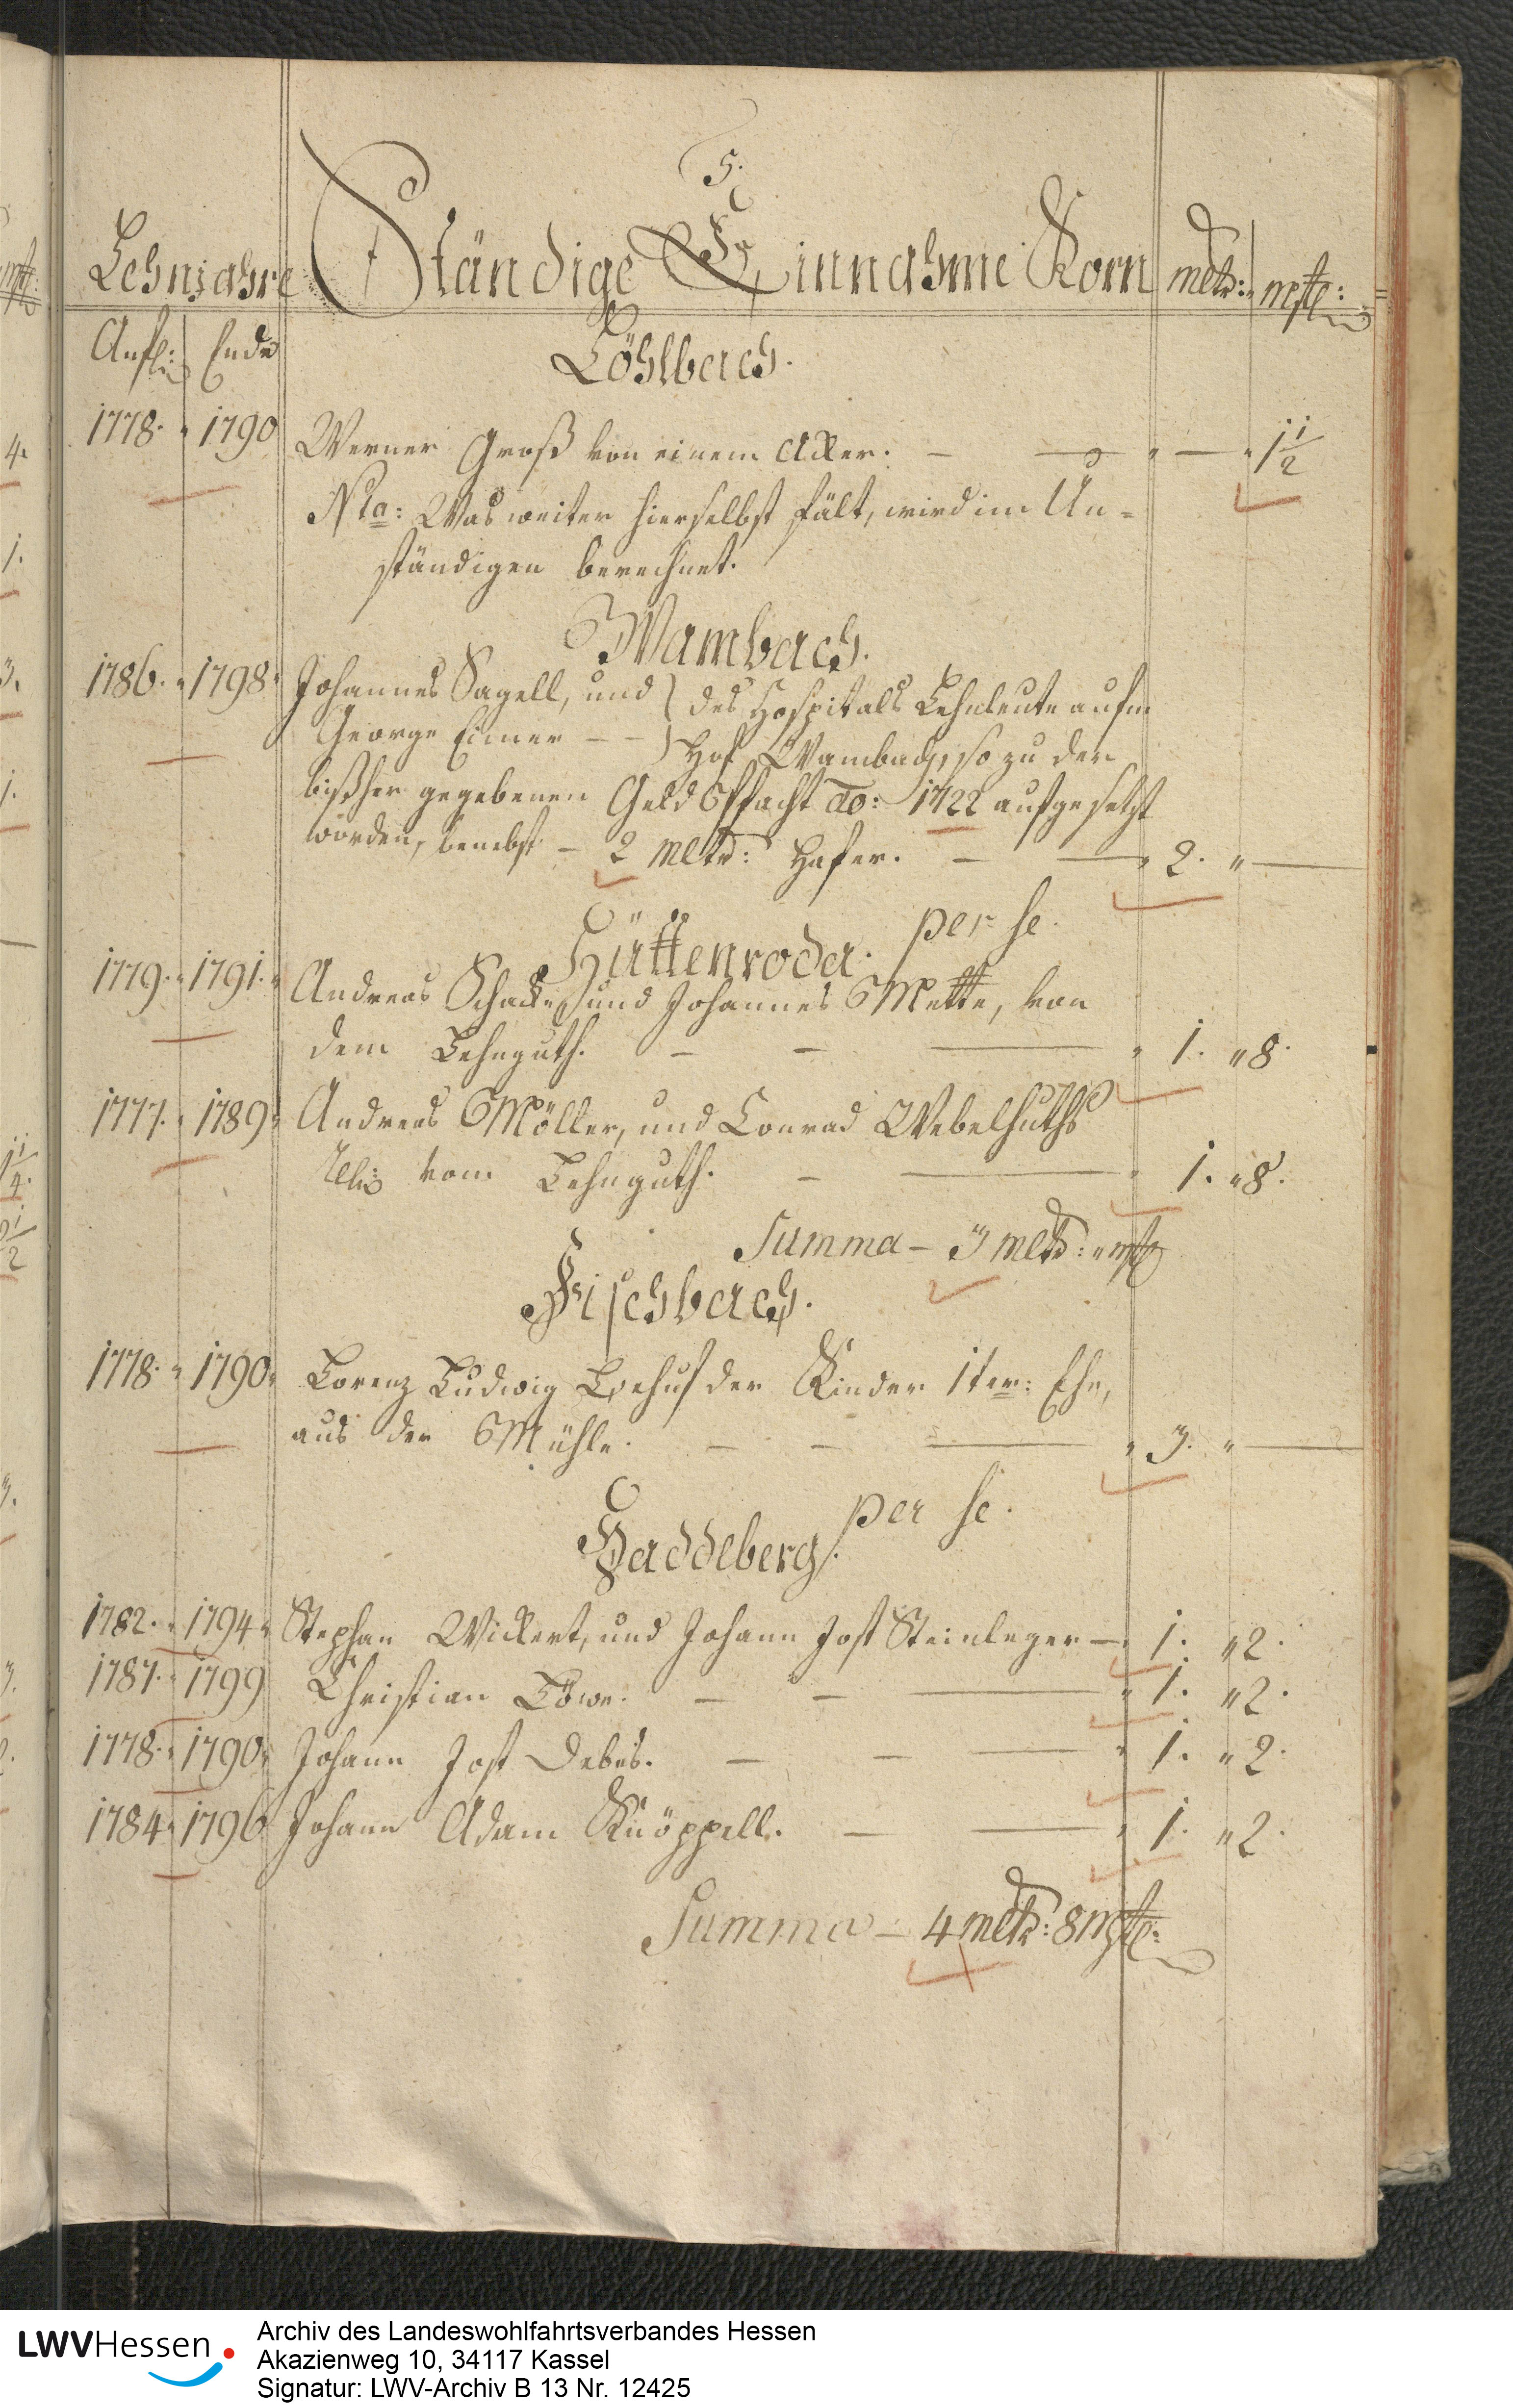 5.
Lehnjahre Ständige Einnahme Korn mltr: mtt:
Anf: Ende
Löhlbach.
1778. 1790 Werner Groß von einem Acker. — — " — " 1 1/2
Nta: Was weiter hierselbst fält, wird im Un=
ständigen berechnet.
Wambach.
1786. 1798. Johannes Sagell, und } des Hospitals Lehnleute aufm
George Eimer — — } Hof Wambach, so zu der
bißher gegebenen Geld Pfacht ao: 1722 aufgesetzt
worden, benebst — 2 Mltr: Hafer. — — " 2. " —
per se.
Hüttenroda.
1779. 1791. Andreas Schacke, und Johannes Mette, von
dem Lehnguth. — — — " 1. " 8.
1777. 1789. Andreas Möller, und Conrad Webelhuths
vom Lehnguth. — — " 1. " 8.
Summa — 3 mltr: " mtt
Fischbach.
1778. 1790. Lorenz Ludwig Behuf der Kinder 1ter: Ehe,
aus der Mühle. — — — " 3. " —
per se.
Haddeberg.
1782. 1794. Stephan Wickert, und Johann Jost Steinleger — 1. " 2.
1787. 1799 Christian Löwe. — — — " 1. " 2.
1778. 1790. Johann Jost Debus. — — — " 1. " 2.
1784. 1796 Johann Adam Knöppell. — — " 1. " 2.
Summa — 4 mltr: 8 mtt:
LWVHessen
Archiv des Landeswohlfahrtsverbandes Hessen
Akazienweg 10, 34117 Kassel
Signatur: LWV-Archiv B 13 Nr. 12425